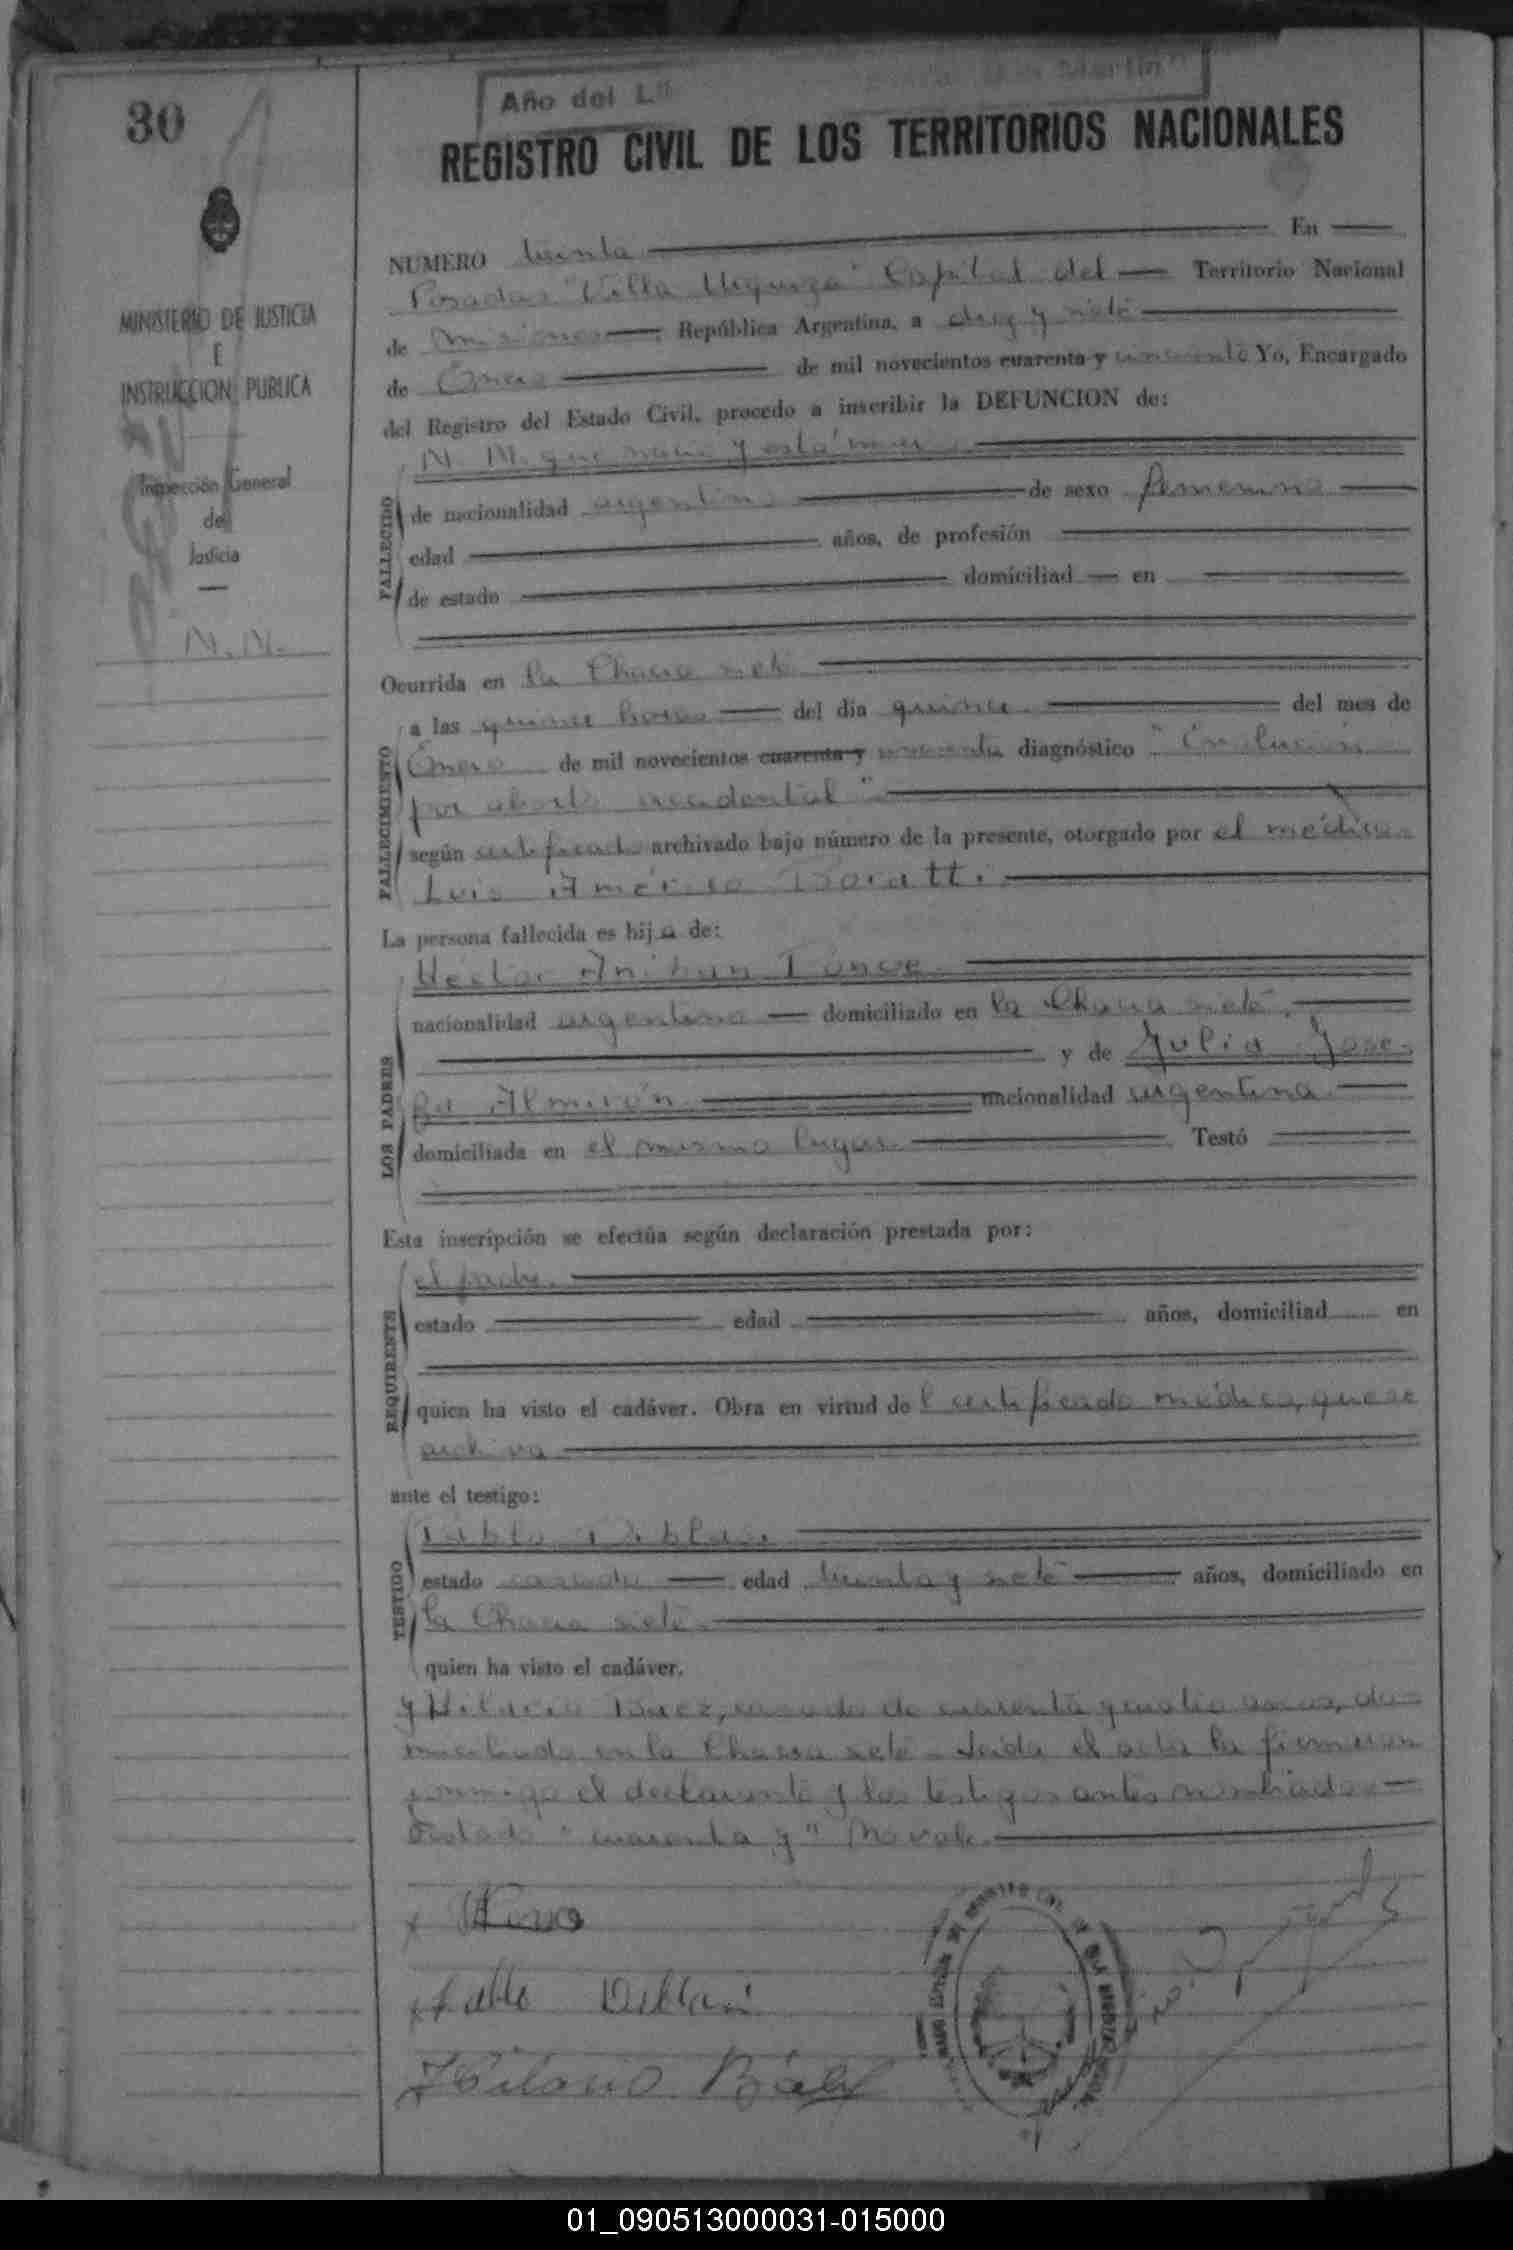 30
Año del Li
San Martín"
REGISTRO CIVIL DE LOS TERRITORIOS NACIONALES
MINISTERIO DE JUSTICIA
E
INSTRUCCION PUBLICA
Inspección General
de
Justicia
N. N.
NUMERO treinta En
Posadas "Villa Urquiza" Capital del Territorio Nacional
de Misiones República Argentina, a diez y siete
de Enero de mil novecientos cuarenta y cincuenta Yo, Encargado
del Registro del Estado Civil, procedo a inscribir la DEFUNCION de:
N. N. que nació y está
FALLECIDO
de nacionalidad argentina de sexo femenino
edad años, de profesión
de estado domiciliad en
Ocurrida en la Chacra siete
FALLECIMIENTO
a las quince horas del día quince del mes de
Enero de mil novecientos cuarenta y cincuenta diagnóstico "
por aborto accidental"
según certificado archivado bajo número de la presente, otorgado por el médico
Luis Américo
La persona fallecida es hija de:
LOS PADRES
Héctor Ponce
nacionalidad argentino domiciliado en la Chacra siete.
y de Julia Jose-
fa Almirón nacionalidad argentina
domiciliada en el mismo lugar. Testó
Esta inscripción se efectúa según declaración prestada por:
REQUIRENTE
el padre.
estado edad años, domiciliad en
quien ha visto el cadáver. Obra en virtud del certificado médico, que se
archiva
ante el testigo:
TESTIGO
Pablo
estado casado edad treinta y siete años, domiciliado en
la Chacra siete.
quien ha visto el cadáver.
y Hilario Baez, casado de cuarenta y cuatro años, do-
miciliado en la Chacra siete. Leida el acta la firmaron
conmigo el declarante y los testigos antes nombrados
Testado "cuarenta y" No vale.
Hilario Báez
01_090513000031-015000